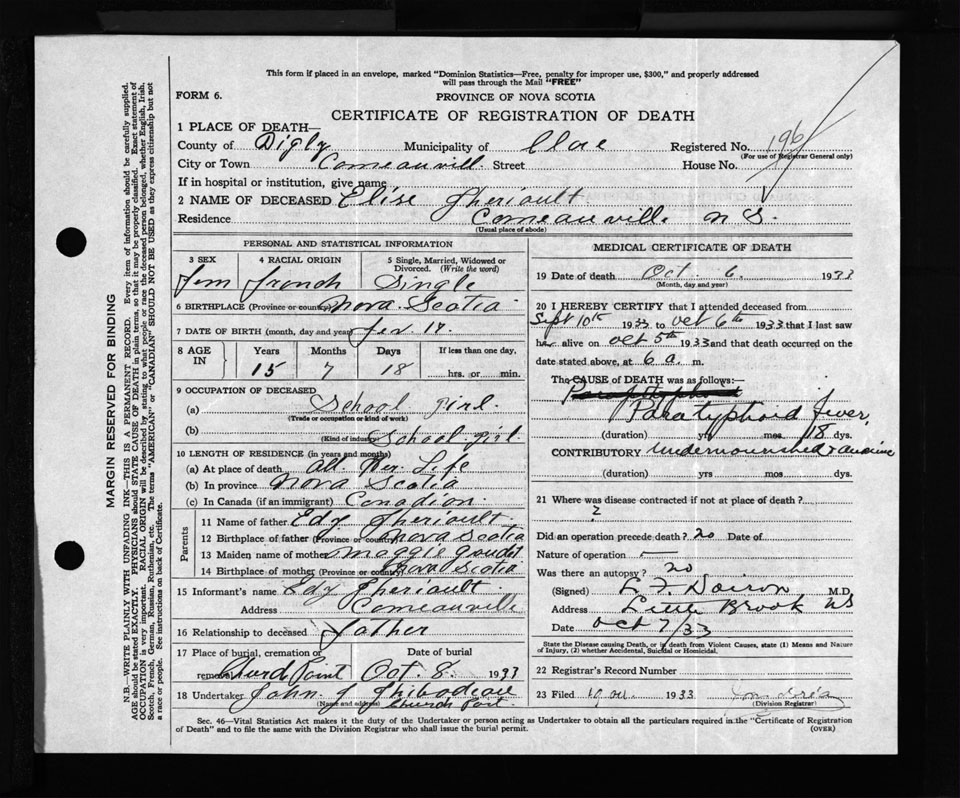 This form if placed in an envelope, marked "Dominion Statistics—Free, penalty for improper use, $300," and properly addressed
will pass through the Mail "FREE"
FORM 6.
PROVINCE OF NOVA SCOTIA
CERTIFICATE OF REGISTRATION OF DEATH
1 PLACE OF DEATH—
County of Digby Municipality of Clare Registered No. 196
(For use of Registrar General only)
City or Town Comeauvill. Street House No.
If in hospital or institution, give name
2 NAME OF DECEASED Elise Theriault
Residence Comeauvill. N S.
(Usual place of abode)
PERSONAL AND STATISTICAL INFORMATION
3 SEX 4 RACIAL ORIGIN 5 Single, Married, Widowed or Divorced. (Write the word)
Fem French Single
6 BIRTHPLACE (Province or country) Nova Scotia
7 DATE OF BIRTH (month, day and year) 17.
8 AGE IN Years Months Days If less than one day,
15 7 18 hrs. or min.
9 OCCUPATION OF DECEASED
(a) School girl.
(Trade or occupation or kind of work)
(b) School girl.
(Kind of industry)
10 LENGTH OF RESIDENCE (in years and months)
(a) At place of death All Her Life
(b) In province Nova Scotia
(c) In Canada (if an immigrant) Canadian.
Parents
11 Name of father Edy Theriault
12 Birthplace of father (Province or country) Nova Scotia
13 Maiden name of mother Maggie Gaudet
14 Birthplace of mother (Province or country) Nova Scotia
15 Informant's name Edy Theriault
Address Comeauville
16 Relationship to deceased Father
17 Place of burial, cremation or removal Date of burial
Point Oct. 8. 1933
18 Undertaker John J Thibodeau
(Name and address) Church Point.
MEDICAL CERTIFICATE OF DEATH
19 Date of death Oct 6. 1933
(Month, day and year)
20 I HEREBY CERTIFY that I attended deceased from
Sept 10th 1933 to Oct 6th 1933 that I last saw
her alive on Oct 5th 1933 and that death occurred on the
date stated above, at 6 a. m.
The CAUSE of DEATH was as follows:—
Paratyphoid Fever,
(duration) yrs mos 18 dys.
CONTRIBUTORY Undernourished &
(duration) yrs mos dys.
21 Where was disease contracted if not at place of death?
?
Did an operation precede death? no Date of
Nature of operation —
Was there an autopsy? no
(Signed) M.D.
Address Little Brook NS
Date Oct 7/33
State the Disease causing Death, or in death from Violent Causes, state (1) Means and Nature
of Injury, (2) whether Accidental, Suicidal or Homicidal.
22 Registrar's Record Number
23 Filed 1933
(Division Registrar)
Sec. 46—Vital Statistics Act makes it the duty of the Undertaker or person acting as Undertaker to obtain all the particulars required in the "Certificate of Registration
of Death" and to file the same with the Division Registrar who shall issue the burial permit. (OVER)
MARGIN RESERVED FOR BINDING
N.B.—WRITE PLAINLY WITH UNFADING INK—THIS IS A PERMANENT RECORD. Every item of information should be carefully supplied.
AGE should be stated EXACTLY. PHYSICIANS should STATE CAUSE OF DEATH in plain terms, so that it may be properly classified. Exact statement of
OCCUPATION is very important. RACIAL ORIGIN will be described by stating to what people or race the deceased person belonged, whether English, Irish,
Scotch, French, German, Russian, Ruthenian, etc. The terms "AMERICAN" or "CANADIAN" SHOULD NOT BE USED as they express citizenship but not
a race or people. See instructions on back of Certificate.